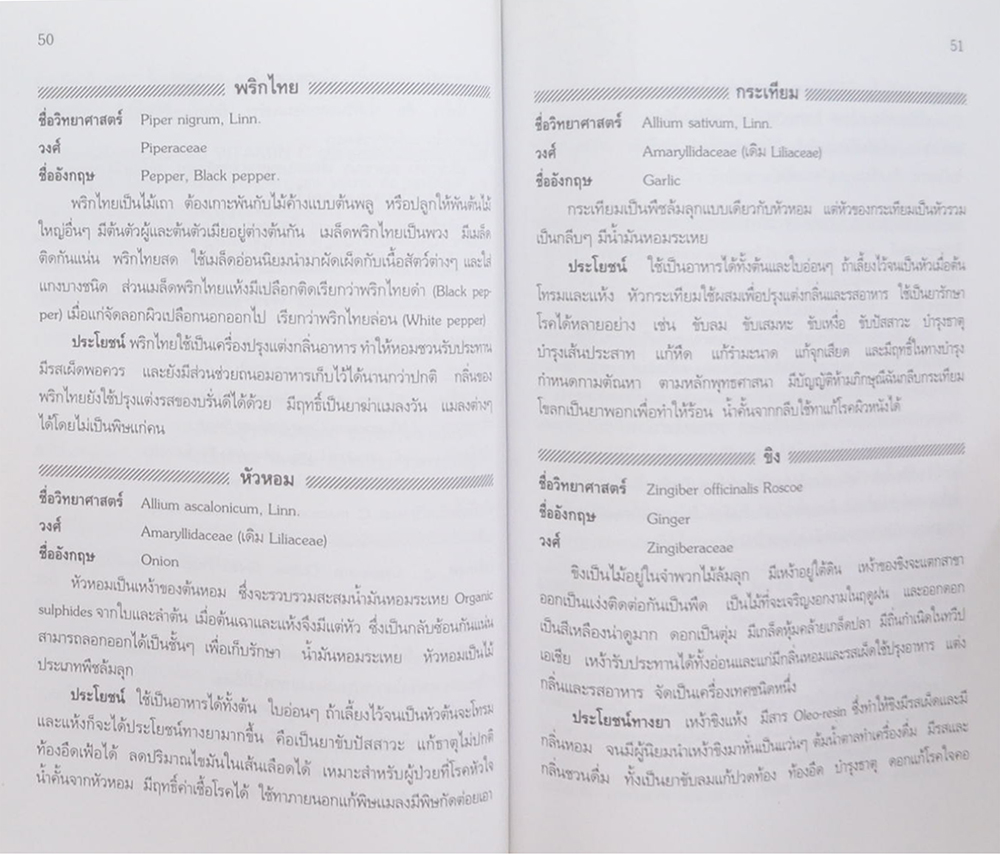 50
พริกไทย
ชื่อวิทยาศาสตร์ Piper nigrum, Linn.
วงศ์ Piperaceae
ชื่ออังกฤษ Pepper, Black pepper.
พริกไทยเป็นไม้เถา ต้องเกาะพันกับไม้ค้างแบบต้นพลู หรือปลูกให้พันต้นไม้
ใหญ่อื่นๆ มีต้นตัวผู้และต้นตัวเมียอยู่ต่างต้นกัน เมล็ดพริกไทยเป็นพวง มีเมล็ด
ติดกันแน่น พริกไทยสด ใช้เมล็ดอ่อนนิยมนำมาผัดเผ็ดกับเนื้อสัตว์ต่างๆ และใส่
แกงบางชนิด ส่วนเมล็ดพริกไทยแห้งมีเปลือกติดเรียกว่าพริกไทยดำ (Black pep-
per) เมื่อแก่จัดลอกผิวเปลือกนอกออกไป เรียกว่าพริกไทยล่อน (White pepper)
ประโยชน์ พริกไทยใช้เป็นเครื่องปรุงแต่งกลิ่นอาหาร ทำให้หอมชวนรับประทาน
มีรสเผ็ดพอควร และยังมีส่วนช่วยถนอมอาหารเก็บไว้ได้นานกว่าปกติ กลิ่นของ
พริกไทยยังใช้ปรุงแต่งรสของบรั่นดีได้ด้วย มีฤทธิ์เป็นยาฆ่าแมลงวัน แมลงต่างๆ
ได้โดยไม่เป็นพิษแก่คน
หัวหอม
ชื่อวิทยาศาสตร์ Allium ascalonicum, Linn.
วงศ์ Amaryllidaceae (เดิม Liliaceae)
ชื่ออังกฤษ Onion
หัวหอมเป็นเหง้าของต้นหอม ซึ่งจะรวบรวมสะสมน้ำมันหอมระเหย Organic
sulphides จากใบและลำต้น เมื่อต้นเฉาและแห้งจึงมีแต่หัว ซึ่งเป็นกลับซ้อนกันแน่น
สามารถลอกออกได้เป็นชั้นๆ เพื่อเก็บรักษา น้ำมันหอมระเหย หัวหอมเป็นไม้
ประเภทพืชล้มลุก
ประโยชน์ ใช้เป็นอาหารได้ทั้งต้น ใบอ่อนๆ ถ้าเลี้ยงไว้จนเป็นหัวต้นจะโทรม
และแห้งก็จะได้ประโยชน์ทางยามากขึ้น คือเป็นยาขับปัสสาวะ แก้ธาตุไม่ปกติ
ท้องอืดเฟ้อได้ ลดปริมาณไขมันในเส้นเลือดได้ เหมาะสำหรับผู้ป่วยที่โรคหัวใจ
น้ำคั้นจากหัวหอม มีฤทธิ์ค่าเชื้อโรคได้ ใช้ทาภายนอกแก้พิษแมลงมีพิษกัดต่อยเอา
51
กระเทียม
ชื่อวิทยาศาสตร์ Allium sativum, Linn.
วงศ์ Amaryllidaceae (เดิม Liliaceae)
ชื่ออังกฤษ Garlic
กระเทียมเป็นพืชล้มลุกแบบเดียวกับหัวหอม แต่หัวของกระเทียมเป็นหัวรวม
เป็นกลีบๆ มีน้ำมันหอมระเหย
ประโยชน์ ใช้เป็นอาหารได้ทั้งต้นและใบอ่อนๆ ถ้าเลี้ยงไว้จนเป็นหัวเมื่อต้น
โทรมและแห้ง หัวกระเทียมใช้ผสมเพื่อปรุงแต่งกลิ่นและรสอาหาร ใช้เป็นยารักษา
โรคได้หลายอย่าง เช่น ขับลม ขับเสมหะ ขับเหงื่อ ขับปัสสาวะ บำรุงธาตุ
บำรุงเส้นประสาท แก้หืด แก้รำมะนาด แก้จุกเสียด และมีฤทธิ์ในทางบำรุง
กำหนดกามตัณหา ตามหลักพุทธศาสนา มีบัญญัติห้ามภิกษุณีฉันกลีบกระเทียม
โขลกเป็นยาพอกเพื่อทำให้ร้อน น้ำคั้นจากกลีบใช้ทาแก้โรคผิวหนังได้
ขิง
ชื่อวิทยาศาสตร์ Zingiber officinalis Roscoe
ชื่ออังกฤษ Ginger
วงศ์ Zingiberaceae
ขิงเป็นไม้อยู่ในจำพวกไม้ล้มลุก มีเหง้าอยู่ใต้ดิน เหง้าของขิงจะแตกสาขา
ออกเป็นแง่งติดต่อกันเป็นพืด เป็นไม้ที่จะเจริญงอกงามในฤดูฝน และออกดอก
เป็นสีเหลืองน่าดูมาก ดอกเป็นตุ่ม มีเกล็ดหุ้มคล้ายเกล็ดปลา มีถิ่นกำเนิดในทวีป
เอเชีย เหง้ารับประทานได้ทั้งอ่อนและแก่มีกลิ่นหอมและรสเผ็ดใช้ปรุงอาหาร แต่ง
กลิ่นและรสอาหาร จัดเป็นเครื่องเทศชนิดหนึ่ง
ประโยชน์ทางยา เหง้าขิงแห้ง มีสาร Oleo-resin ซึ่งทำให้ขิงมีรสเผ็ดและมี
กลิ่นหอม จนมีผู้นิยมนำเหง้าขิงมาหั่นเป็นแว่นๆ ต้มน้ำตาลทำเครื่องดื่ม มีรสและ
กลิ่นชวนดื่ม ทั้งเป็นยาขับลมแก้ปวดท้อง ท้องอืด บำรุงธาตุ ดอกแก้โรคใจคอ